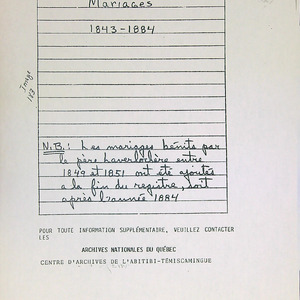 Mariages
1843-1884
Image
1V3
N.B.: Les mariages bénits par
le père Laverlochère entre
1849 et 1851 ont été ajoutés
a la fin du registre, soit
après l'année 1884
POUR TOUTE INFORMATION SUPPLÉMENTAIRE, VEUILLEZ CONTACTER
LES
ARCHIVES NATIONALES DU QUÉBEC
CENTRE D'ARCHIVES DE L'ABITIBI-TÉMISCAMINGUE